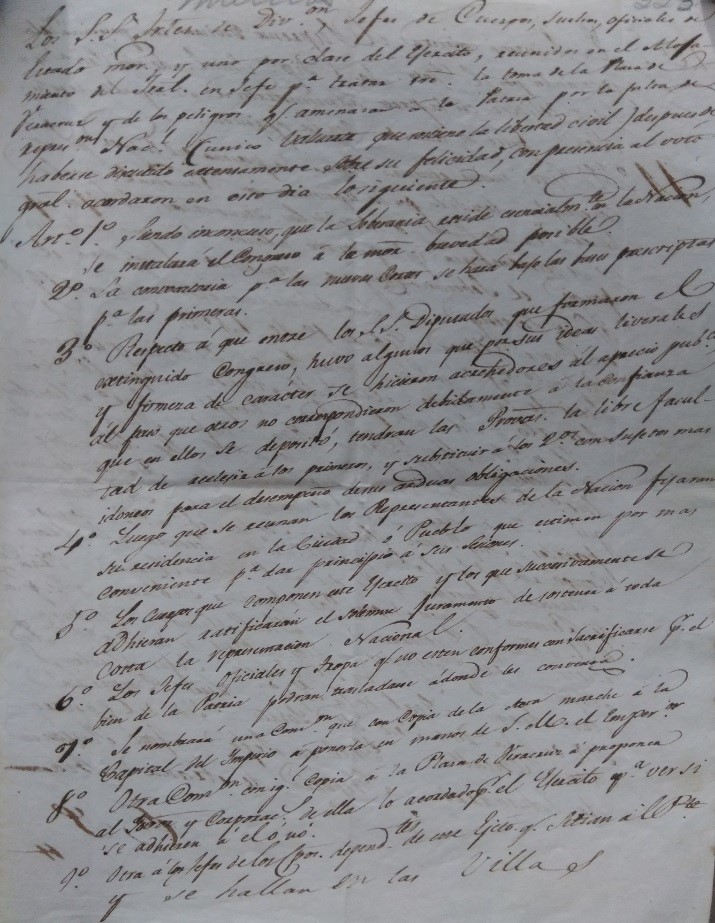 Los S.S.s Jeses de Div.on, Jefes de Cuerpos, sueltos, oficiales de
Estado mor. y uno por clase del Ejercito, reunidos en el Aloja-
miento del Gral. en Jefe p.a tratar sre. la toma de la Plaza de
Veracruz y de los peligros q. amenazan a la Patria por la falta de
repres.on Nac.l (unico baluarte que sostiene la libertad civil) despues de
haberse discutido atentamente sobre su felicidad, con presencia al voto
gral. acordaron en este dia lo siguiente.
Art.o 1.o Siendo inconcuso, que la Soberania reside esencialm.te en la Nacion,
se instalará el Congreso á la mor. brevedad posible.
2.o La convocatoria p.a las nuevas Cortes se hará bajo las bases prescriptas
p.a las primeras.
3.o Respecto á que entre los S.S. Diputados que formaron el
extinguido Congreso, huvo algunos que por sus ideas liverales
y firmeza de carácter se hicieron acrehedores al aprecio pub.co
al paso que otros no correspondieron debidamente á la confianza
que en ellos se depositó, tendran las Provas. la libre facul-
tad de reelejir á los primeros, y substituir á los 2.os con sujetos mas
idoneos para el desempeño de sus arduas obligaciones.
4.o Luego que se reunan los Representantes de la Nacion fijaran
su residencia en la Ciudad ó Pueblo que estimen por mas
conveniente p.a dar principio a sus sesiones.
5.o Los Cuerpos que componen este Ejercito y los que succesivamente se
adhieran ratificarán el solemne juramento de sostener á toda
costa la representacion Nacional.
6.o Los Jefes Oficiales y Tropa q. no esten conformes con sacrificarse p.r el
bien de la Patria podran trasladarse adonde les convenga.
7.o Se nombrará una Com.on que con Copia de la Acta marche á la
Capital del Imperio a ponerla en manos de S. M. el Emper.or
8.o Otra Com.on con ig.l Copia a la Plaza de Veracruz á proponer
al Gover.or y Corporac.s de ella lo acordado p.r el Ejercito p.a ver si
se adhieren á él o no.
9.o Otra á los Jefes de los Cpos. depend.tes de este Ejcto. q. sitian á el Pte.
y se hallan en las Villas